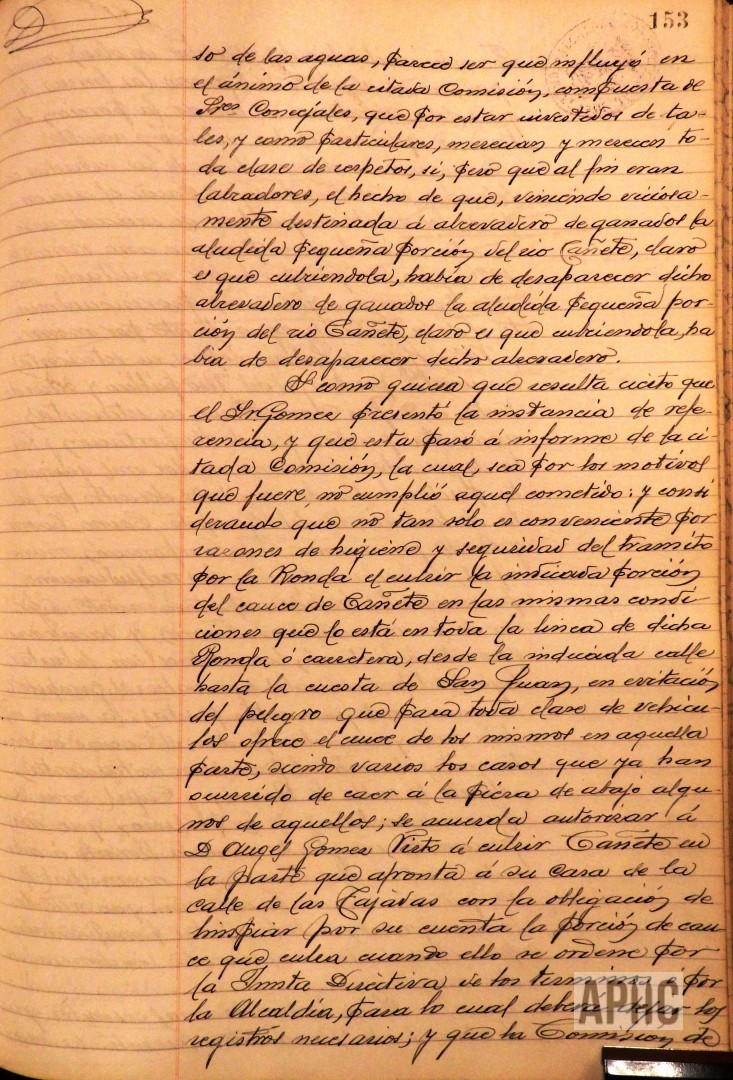 153
so de las aguas, parece ser que influyó en
el ánimo de la citada Comisión, compuesta de
Sres Concejales, que por estar investidos de ta-
les, y como particulares, merecian y merecen to-
da clase de respetos, si, pero que al fin eran
labradores, el hecho de que, viniendo viciosa-
mente destinada á abrevadero de ganados la
aludida pequeña porción del rio Cañete, claro
es que cubriendola, había de desaparecer dicho
abrevadero de ganados la aludida pequeña por-
ción del rio Cañete, claro es que cubriendola, ha
bia de desaparecer dicho abrevadero.
Y como quiera que resulta cierto que
el Sr Gomez presentó la instancia de refe-
rencia, y que esta pasó á informe de la ci-
tada Comisión, la cual, sea por los motivos
que fuere, no cumplió aquel cometido: y consi
derando que no tan solo es conveniente por
razones de higiene y seguridad del transito
por la Ronda el cubrir la indicada porción
del cauce de Cañete en las mismas condi-
ciones que lo está en toda la linea de dicha
Ronda ó carretera, desde la indicada calle
hasta la cuesta de San Juan, en evitación
del peligro que para toda clase de vehicu-
los ofrece el cruce de los mismos en aquella
parte, siendo varios los casos que ya han
ocurrido de caer á la pieza de abajo algu-
nos de aquellos; se acuerda autorizar á
D Angel Gomez Visto á cubrir Cañete en
la parte que afronta á su casa de la
calle de las Tajadas con la obligación de
limpiar por su cuenta la porción de cau
ce que cubra cuando ello se ordene por
la Junta Directiva de los terminos ó por
la Alcaldía, para lo cual deberá dejar los
registros necesarios; y que la Comision de
APHC